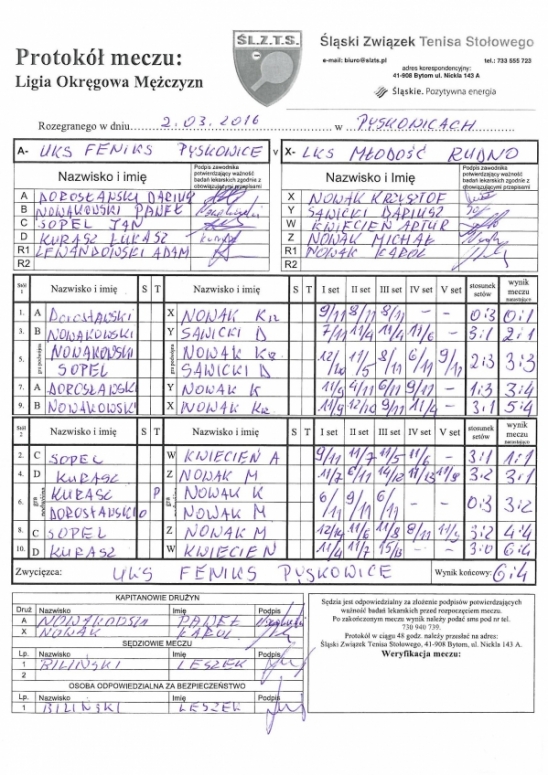 Ś.L.Z.T.S.
Śląski Związek Tenisa Stołowego
e-mail: biuro@slzts.pl tel.: 733 555 723
adres korespondencyjny:
41-908 Bytom ul. Nickla 143 A
Śląskie. Pozytywna energia
Protokół meczu:
Ligia Okręgowa Mężczyzn
Rozegranego w dniu 2.03.2016 w PYSKOWICACH
A- UKS FENIKS PYSKOWICE v X- LKS MŁODOŚĆ RUDNO
Nazwisko i imię Podpis zawodnika potwierdzający ważność badań lekarskich zgodnie z obowiązującymi przepisami Nazwisko i imię Podpis zawodnika potwierdzający ważność badań lekarskich zgodnie z obowiązującymi przepisami
A DOROSŁAŃSKI DARIUSZ X NOWAK KRZYSZTOF
B NOWAKOWSKI PAWEŁ Y SAWICKI DARIUSZ
C SOPEL JAN W KWIECIEŃ ARTUR
D KURASZ ŁUKASZ Z NOWAK MICHAŁ
R1 LEWANDOWSKI ADAM R1 NOWAK KAROL
R2 R2
Stół 1 Nazwisko i imię S T Nazwisko i imię S T I set II set III set IV set V set stosunek setów wynik meczu
1. A DOROSŁAŃSKI X NOWAK Krz 9/11 8/11 8/11 - - 0:3 0:1
3. B NOWAKOWSKI Y SAWICKI D 7/11 11/4 11/4 11/6 - 3:1 2:1
5. gra podwójna NOWAKOWSKI NOWAK Krz 12/10 11/5 8/11 6/11 9/11 2:3 3:3
SOPEL SAWICKI D
7. A DOROSŁAŃSKI Y NOWAK K 11/9 4/11 6/11 9/11 - 1:3 3:4
9. B NOWAKOWSKI X NOWAK Krz 11/9 12/10 9/11 11/4 - 3:1 5:4
Stół 2 Nazwisko i imię S T Nazwisko i imię S T I set II set III set IV set V set stosunek setów wynik meczu
2. C SOPEL W KWIECIEŃ A 9/11 11/7 11/5 11/6 - 3:1 1:1
4. D KURASZ Z NOWAK M 11/7 6/11 14/12 3:2 3:1
6. gra podwójna KURASZ P NOWAK K 6/11 9/11 6/11 0:3 3:2
DOROSŁAŃSKI D NOWAK M
8. C SOPEL Z NOWAK M 12/14 11/6 11/8 8/11 11/9 3:2 4:4
10. D KURASZ W KWIECIEŃ 11/4 11/7 15/13 - - 3:0 6:4
Zwycięzca: UKS FENIKS PYSKOWICE Wynik końcowy: 6:4
KAPITANOWIE DRUŻYN
Druż Nazwisko Imię Podpis
A NOWAKOWSKI PAWEŁ
X NOWAK KAROL
SĘDZIOWIE MECZU
Lp. Nazwisko Imię Podpis
1 BILIŃSKI LESZEK
2
OSOBA ODPOWIEDZIALNA ZA BEZPIECZEŃSTWO
Lp. Nazwisko Imię Podpis
1 BILIŃSKI LESZEK
Sędzia jest odpowiedzialny za złożenie podpisów potwierdzających
ważność badań lekarskich przed rozpoczęciem meczu.
Po zakończonym meczu wynik należy podać sms pod nr tel.
730 940 739.
Protokół w ciągu 48 godz. należy przesłać na adres:
Śląski Związek Tenisa Stołowego, 41-908 Bytom, ul. Nickla 143 A.
Weryfikacja meczu: